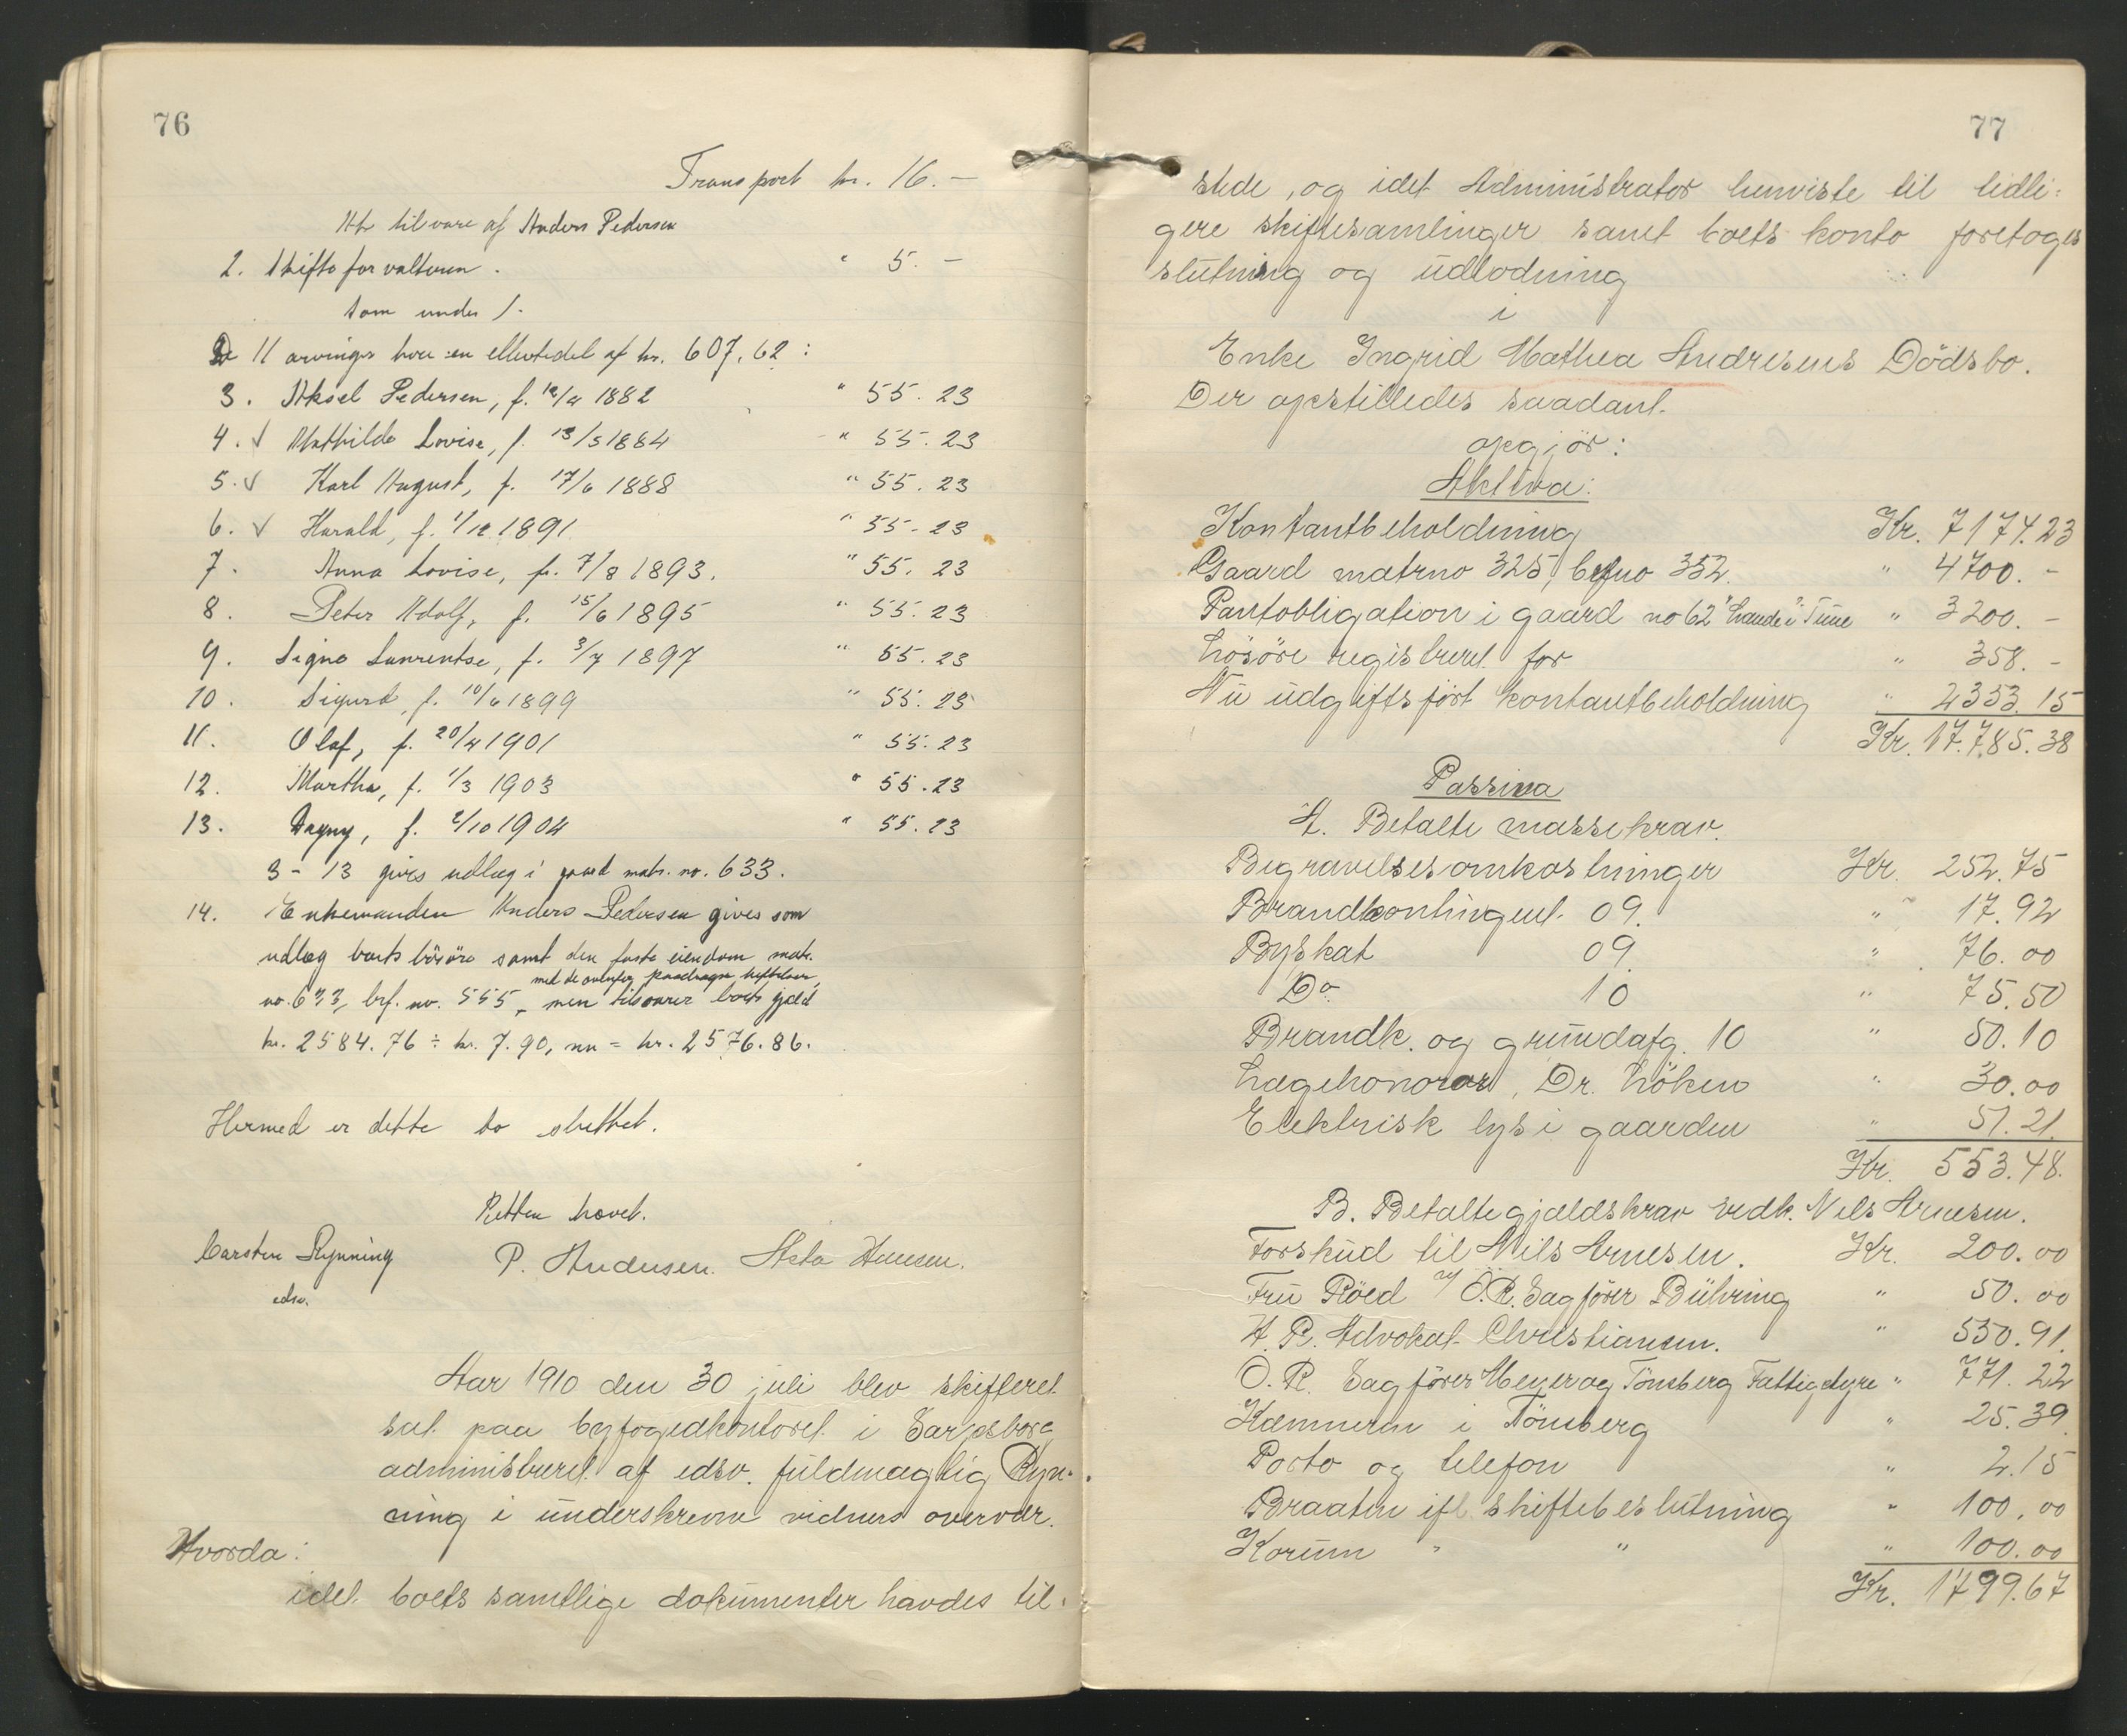 76
Transport kr. 16.–
At tilvare af Anders Pedersen
2. Skifteforvalteren. " 5.–
Som under 1.
De 11 arvinger hver en ellevtedel af kr. 607.62:
3. Aksel Pedersen, f. 1882 " 55.23
4. √ Mathilde Lovise, f. 13/5 1884 " 55.23
5. √ Karl August, f. 17/6 1888 " 55.23
6. √ Harald, f. 1/12 1891 " 55.23
7. Anna Lovise, f. 7/8 1893. " 55.23
8. Peter Adolf, f. 15/6 1895 " 55.23
9. Signe Laurentse, f. 3/7 1897 " 55.23
10. Sigurd, f. 10/6 1899 " 55.23
11. Olaf, f. 20/4 1901 " 55.23
12. Martha, f. 1/3 1903 " 55.23
13. Dagny, f. 2/10 1904 " 55.23
3 - 13 gives udlæg i gaard matr. no. 633.
14. Enkemanden Anders Pedersen gives som
udlæg boets løsøre samt den faste eiendom matr.
med de ovenfor paadragne heftelser,
no. 633, brf. no. 555, men tilsvarer boets gjæld
kr. 2584.76 ÷ kr. 7.90, nu = kr. 2576.86.
Hermed er dette bo sluttet.
Retten hævet.
Carsten Rynning P. Andresen. Hansen.
edsv.
Aar 1910 den 30 juli blev skifteret
sat paa byfogedkontoret i Sarpsborg
administreret af edsv. fuldmægtig Ryn-
ning i underskrevne vidners overvær.
Hvorda:
idet boets samtlige dokumenter havdes til-
77
stede, og idet Administrator henviste til tidli=
gere skiftesamlinger samt boets konto foretoges
slutning og udlodning
i
Enke Ingrid Mathea Andresens Dødsbo.
Der opstilledes saadant
opgjør:
Aktiva:
Kontantbeholdning Kr. 7174.23
Gaard matrno 325, brfno 352. " 4700.-
Pantobligation i gaard no 62 "Lande" i Tune " 3200.-
Løsøre registreret for " 358.-
Nu udgiftsført kontantbeholdning " 2353.15
Kr. 17.785.38
Passiva
A. Betalte massekrav.
Begravelsesomkostninger Kr. 252.75
Brandkontingent 09. " 17.92
Byskat 09. " 76.00
Do 10 " 75.50
Brandk. og grundafg. 10 " 50.10
Lægehonorar, Dr. Løken " 30.00
Elektrisk lys i gaarden " 51.21.
Kr. 553.48.
B. Betalte gjældskrav vedk. Nils Arnesen.
Forskud til Nils Arnesen. Kr. 200.00
Fru Røed v/ O.R. Sagfører Bühring " 50.00
H. R. Advokat Christiansen. " 550.91.
O. R. Sagfører Meyer og Tønsberg Fattigstyre " 771.22
Kæmneren i Tønsberg " 25.39.
Porto og telefon " 2.15
Braaten ifl. skiftebeslutning " 100.00
Korum " " " 100.00
Kr. 1799.67